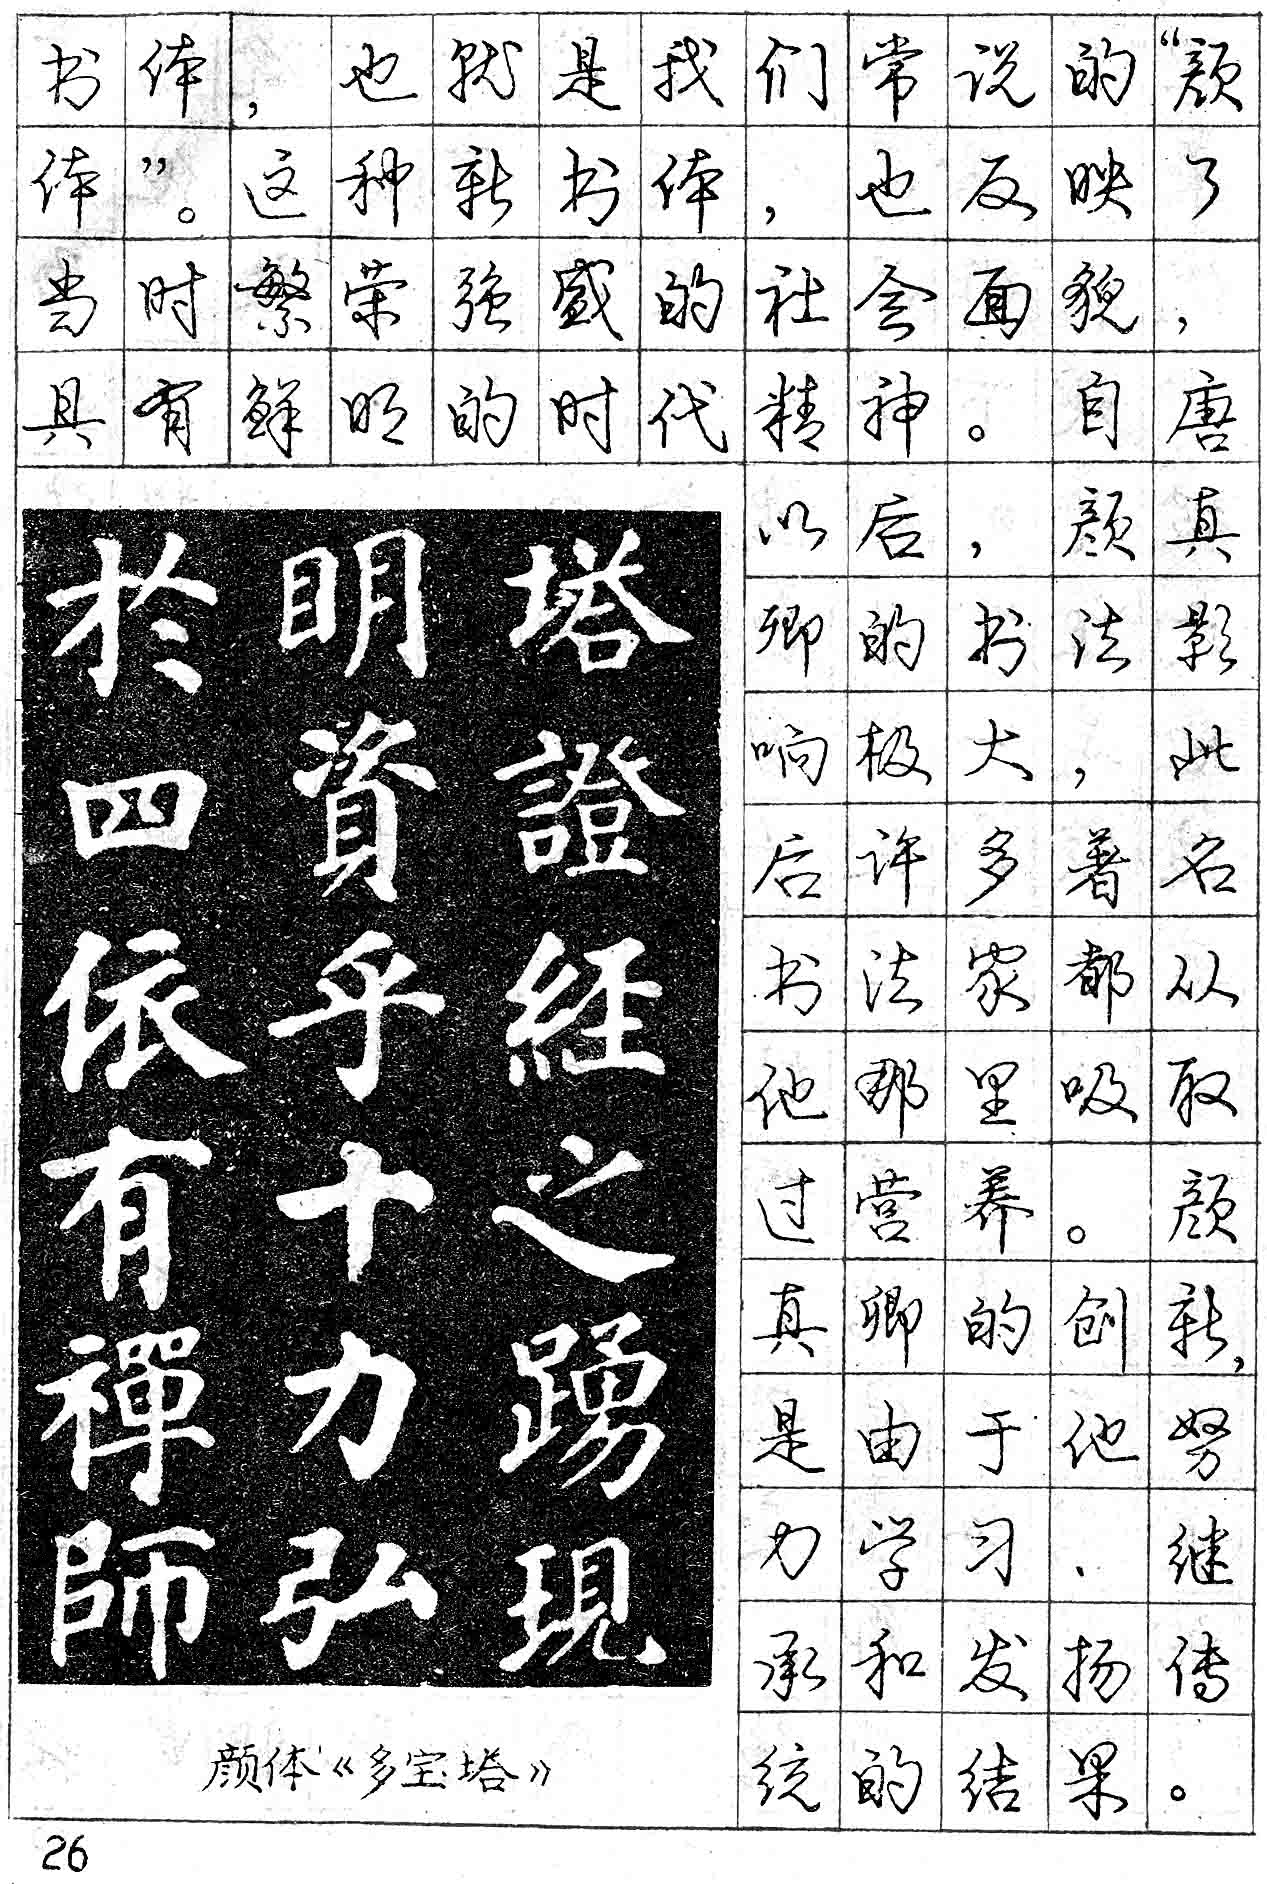 书体，也就是我们常说的“颜
体”。这种新书体，也反映了
当时繁荣强盛的社会面貌，
具有鲜明的时代精神。自唐
以后，颜真
卿的书法影
响极大，此
后许多著名
书法家都从
他那里吸取
过营养。颜
真卿的创新，
是由于他努
力学习、继
承和发扬传
统的结果。
塔證經之踴現
明資乎十力弘
於四依有禪師
颜体《多宝塔》
26